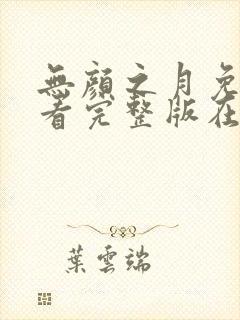 無顏之月免
看完整版在
葉雲端